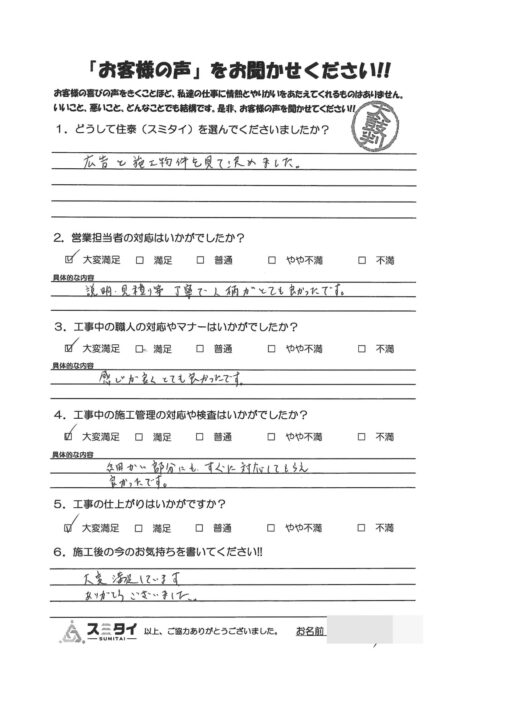 「お客様の声」をお聞かせください!!
お客様の喜びの声をきくことほど、私達の仕事に情熱とやりがいをあたえてくれるものはありません。
いいこと、悪いこと、どんなことでも結構です。是非、お客様の声を聞かせてください!!
太鼓判
1．どうして住泰（スミタイ）を選んでくださいましたか？
広告と施工物件を見て決めました。
2．営業担当者の対応はいかがでしたか？
☑ 大変満足 □ 満足 □ 普通 □ やや不満 □ 不満
具体的な内容
説明・見積り等 丁寧で人柄がとても良かったです。
3．工事中の職人の対応やマナーはいかがでしたか？
☑ 大変満足 □ 満足 □ 普通 □ やや不満 □ 不満
具体的な内容
感じが良くとても良かったです。
4．工事中の施工管理の対応や検査はいかがでしたか？
☑ 大変満足 □ 満足 □ 普通 □ やや不満 □ 不満
具体的な内容
細かい部分にもすぐに対応してもらえ
良かったです。
5．工事の仕上がりはいかがですか？
☑ 大変満足 □ 満足 □ 普通 □ やや不満 □ 不満
6．施工後の今のお気持ちを書いてください!!
大変満足しています
ありがとうございました。
スミタイ 以上、ご協力ありがとうございました。 お名前
SUMITAI